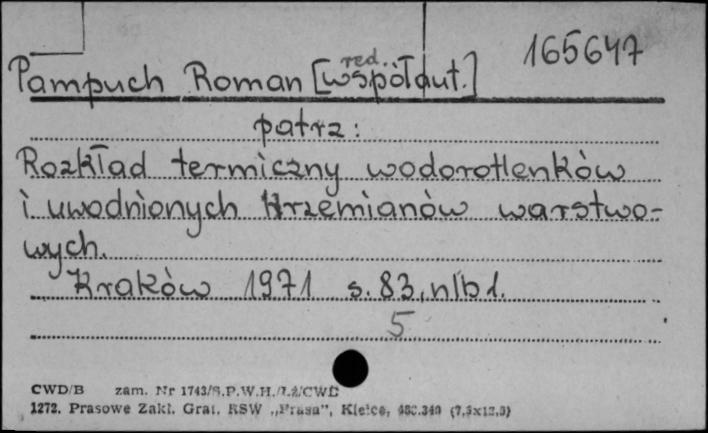 165647
red.
Pampuch Roman [współaut.]
patrz:
Rozkład termiczny wodorotlenków
i uwodnionych krzemianów warstwo-
wych.
Kraków 1971 s. 83, nlb 1.
5
CWD/B zam. Nr 1743/S.P.W.H./Ł/CWD
1272. Prasowe Zakł. Graf. RSW „Prasa", Kielce, 480.340 (7,5x12,5)